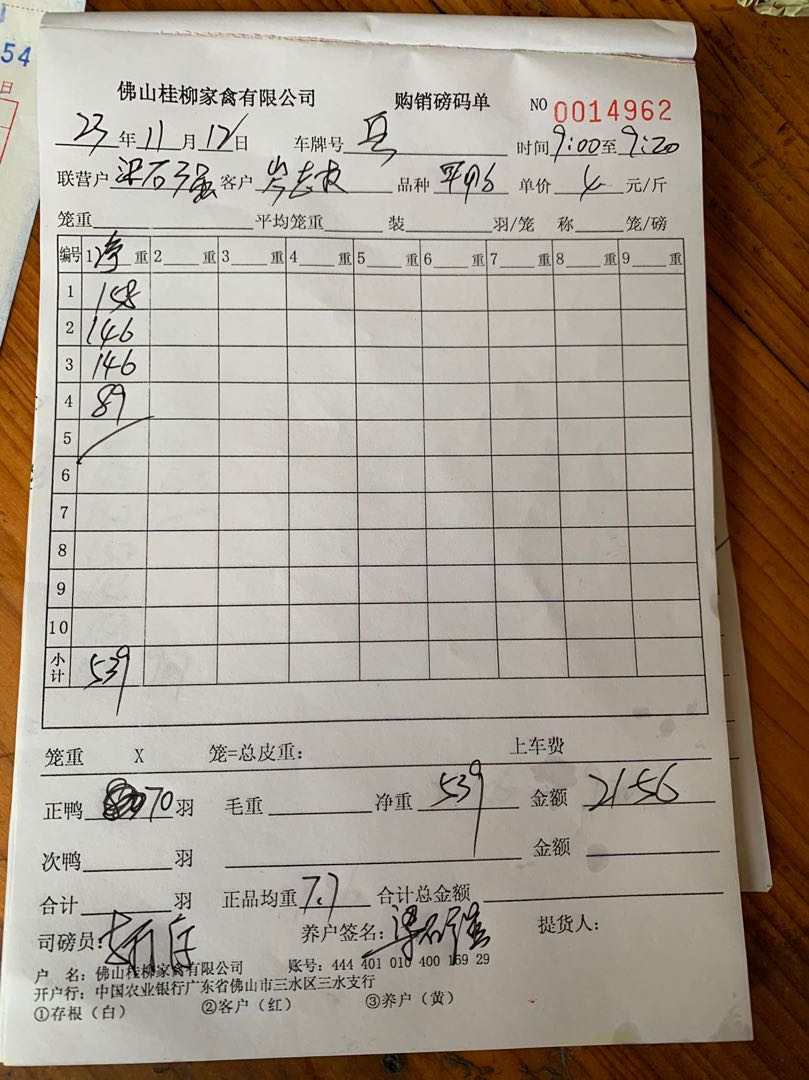 54
日
佛山桂柳家禽有限公司 购销磅码单 NO 0014962
23年11月12日 车牌号 时间9:00至9:20
联营户 梁石强 客户 岑志 品种 平鸭 单价 4 元/斤
笼重 平均笼重 装 羽/笼 称 笼/磅
编号 1净重 2重 3重 4重 5重 6重 7重 8重 9重
1 158
2 146
3 146
4 89
5
6
7
8
9
10
小计 539
笼重 X 笼=总皮重: 上车费
正鸭 70 羽 毛重 净重 539 金额 2156
次鸭 羽 金额
合计 羽 正品均重 7.7 合计总金额
司磅员: 养户签名: 梁石强 提货人:
户 名: 佛山桂柳家禽有限公司 账号: 444 401 010 400 169 29
开户行: 中国农业银行广东省佛山市三水区三水支行
①存根（白） ②客户（红） ③养户（黄）